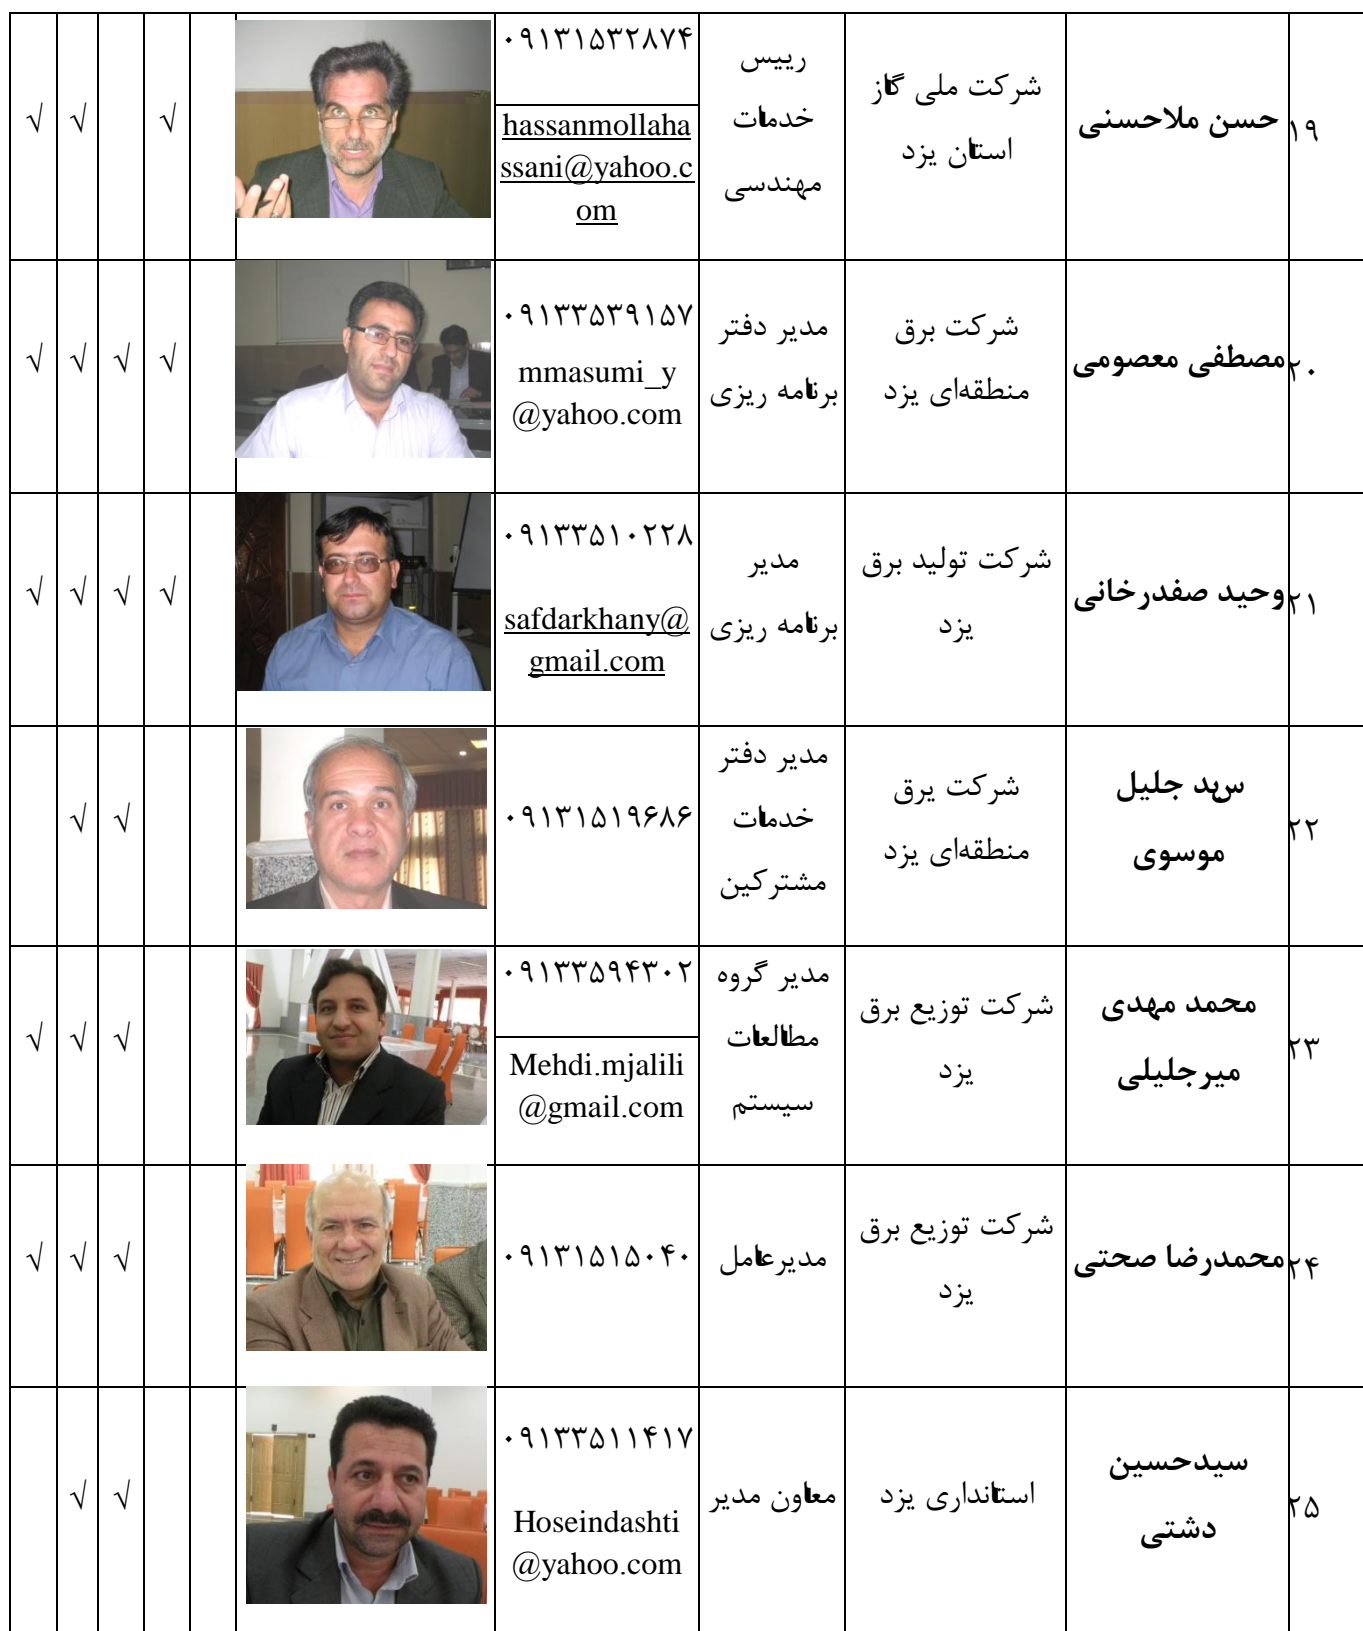 ۱۹
حسن ملاحسنی
شرکت ملی گاز
استان یزد
رییس
خدمات
مهندسی
۰۹۱۳۱۵۳۲۸۷۴
hassanmollaha
ssani@yahoo.c
om
√
√
√
۲۰
مصطفی معصومی
شرکت برق
منطقه‌ای یزد
مدیر دفتر
برنامه ریزی
۰۹۱۳۳۵۳۹۱۵۷
mmasumi_y
@yahoo.com
√
√
√
√
۲۱
وحید صفدرخانی
شرکت تولید برق
یزد
مدیر
برنامه ریزی
۰۹۱۳۳۵۱۰۲۲۸
safdarkhany@
gmail.com
√
√
√
√
۲۲
سید جلیل
موسوی
شرکت یرق
منطقه‌ای یزد
مدیر دفتر
خدمات
مشترکین
۰۹۱۳۱۵۱۹۶۸۶
√
√
۲۳
محمد مهدی
میرجلیلی
شرکت توزیع برق
یزد
مدیر گروه
مطالعات
سیستم
۰۹۱۳۳۵۹۴۳۰۲
Mehdi.mjalili
@gmail.com
√
√
√
۲۴
محمدرضا صحتی
شرکت توزیع برق
یزد
مدیرعامل
۰۹۱۳۱۵۱۵۰۴۰
√
√
√
۲۵
سیدحسین
دشتی
استانداری یزد
معاون مدیر
۰۹۱۳۳۵۱۱۴۱۷
Hoseindashti
@yahoo.com
√
√